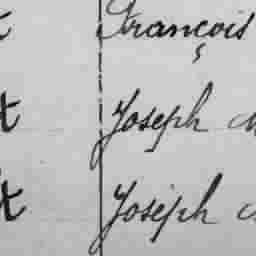 t François
t Joseph
t Joseph